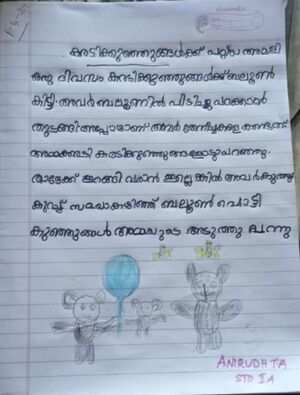 കരടിക്കുഞ്ഞുങ്ങൾക്ക് പറ്റിയ അമളി
ഒരു ദിവസം കരടിക്കുഞ്ഞുങ്ങൾക്ക് ബലൂൺ
കിട്ടി. അവർ ബലൂണിൽ പിടിച്ചു പറക്കാൻ
തുടങ്ങി. അപ്പോഴാണ് അവർ തേനീച്ചകളെ കണ്ടത്
അമ്മക്കരടി കരടിക്കുഞ്ഞുങ്ങളോടു പറഞ്ഞു.
താഴേക്ക് ഇറങ്ങി വരാൻ ഇല്ലെങ്കിൽ അവർ കുത്തും
കുറച്ച് സമയംകഴിഞ്ഞ് ബലൂൺ പൊട്ടി
കുഞ്ഞുങ്ങൾ അമ്മയുടെ അടുത്തു വന്നു
ANIRUDH T A
STD IA